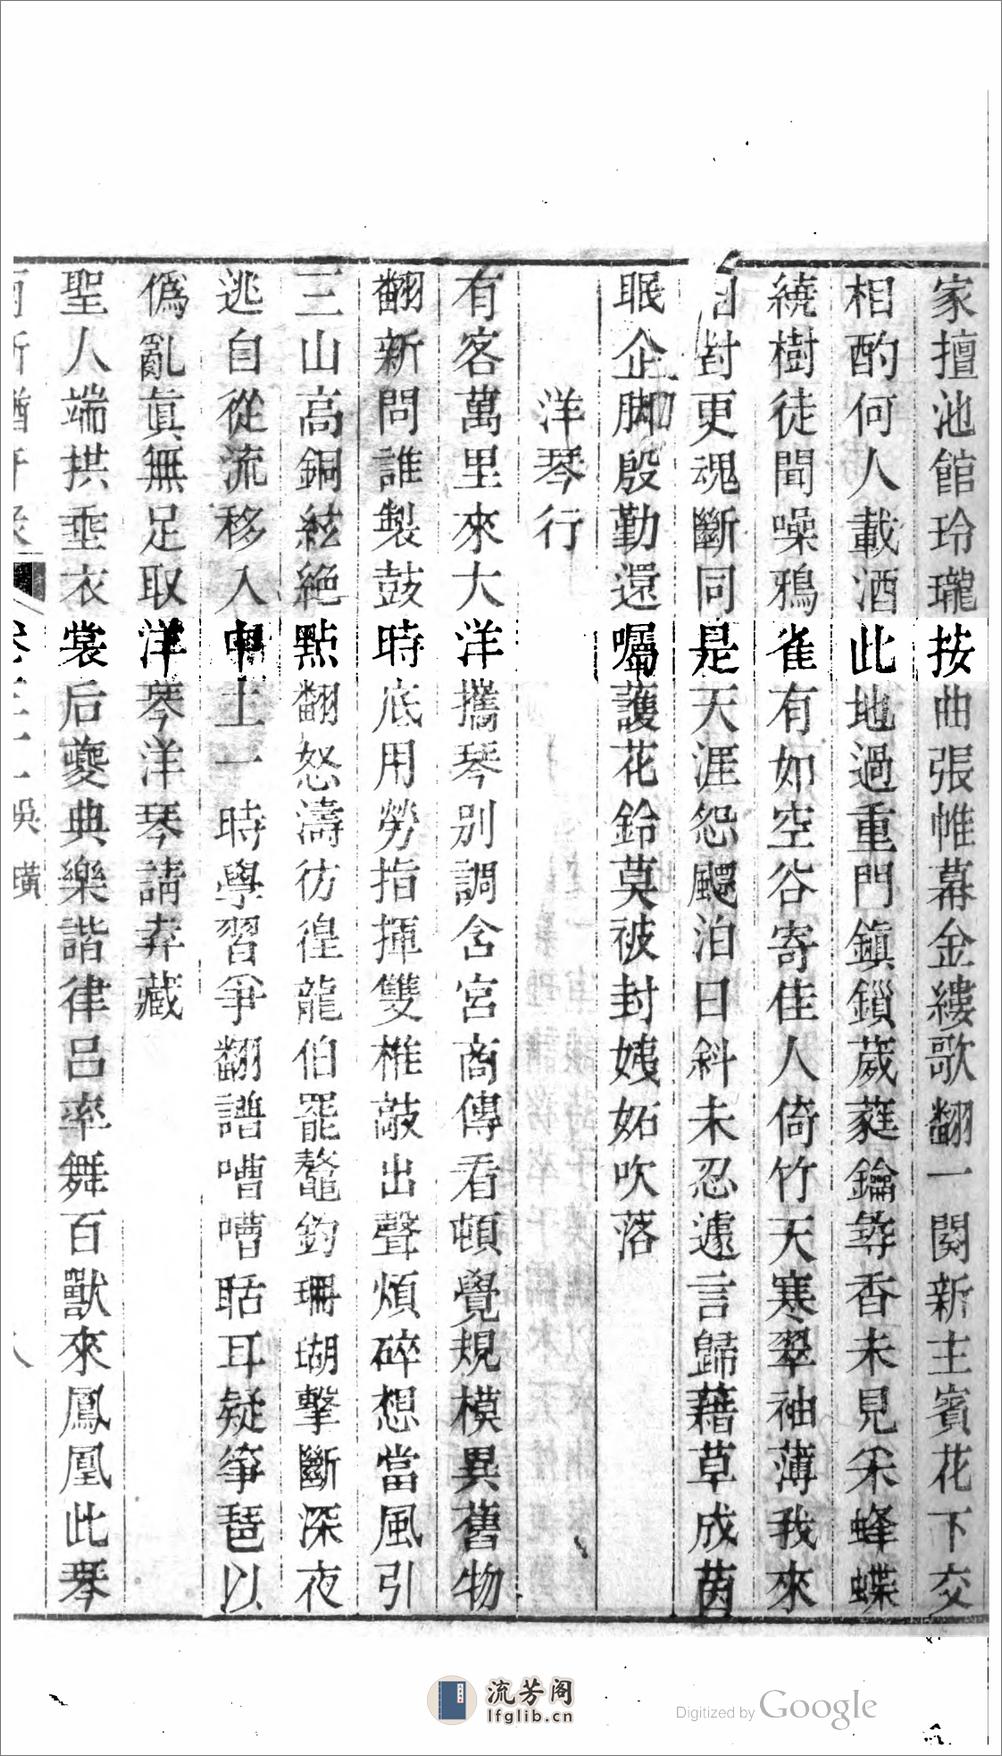 家擅池館玲瓏按曲張帷幕金縷歌翻一闋新主賓花下交
相酌何人載酒此地過重門鎮鎖葳蕤鑰尋香未見尒蜂蝶
繞樹徒聞噪鴉雀有如空谷寄佳人倚竹天寒翠袖薄我來
對更魂斷同是天涯怨飃泊日斜未忍遽言歸藉草成茵
眠企脚殷勤還囑護花鈴莫被封姨妬吹落
洋琴行
有客萬里來大洋攜琴別調含宮商傳看頓覺規模異舊物
翻新問誰製鼓時底用勞指揮雙椎敲出聲煩碎想當風引
三山高銅絃絶點翻怒濤彷徨龍伯罷鼇釣珊瑚擊斷深夜
逃自從流移入中土一時學習爭翻譜嘈嘈聒耳疑箏琶以
僞亂眞無足取洋琴洋琴請弆藏
聖人端拱垂衣裳后夔典樂諧律呂率舞百獸來鳳凰此琴
吳 㬻
流芳阁
lfglib.cn
Digitized by Google